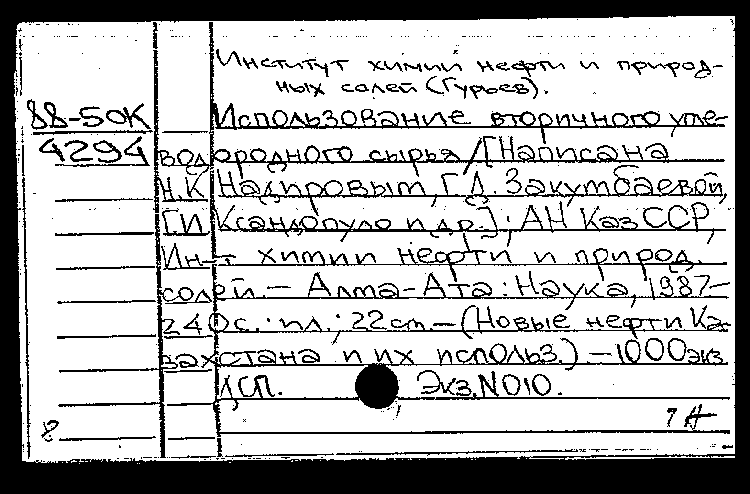 Институт химии нефти и природ-
ных солей (Гурьев).
88-50К Использование вторичного угле-
4294 водородного сырья / [Написана
Н.К Надировым, Г.Д. Закумбаевой,
Г.И Ксандопуло и др.]; АН КазССР,
Ин-т химии нефти и природ.
солей. – Алма-Ата : Наука, 1987–
240с. : ил.; 22cm – (Новые нефти Ка-
захстана и их использ.) – 1000экз
ДСП. Экз.N010.
8